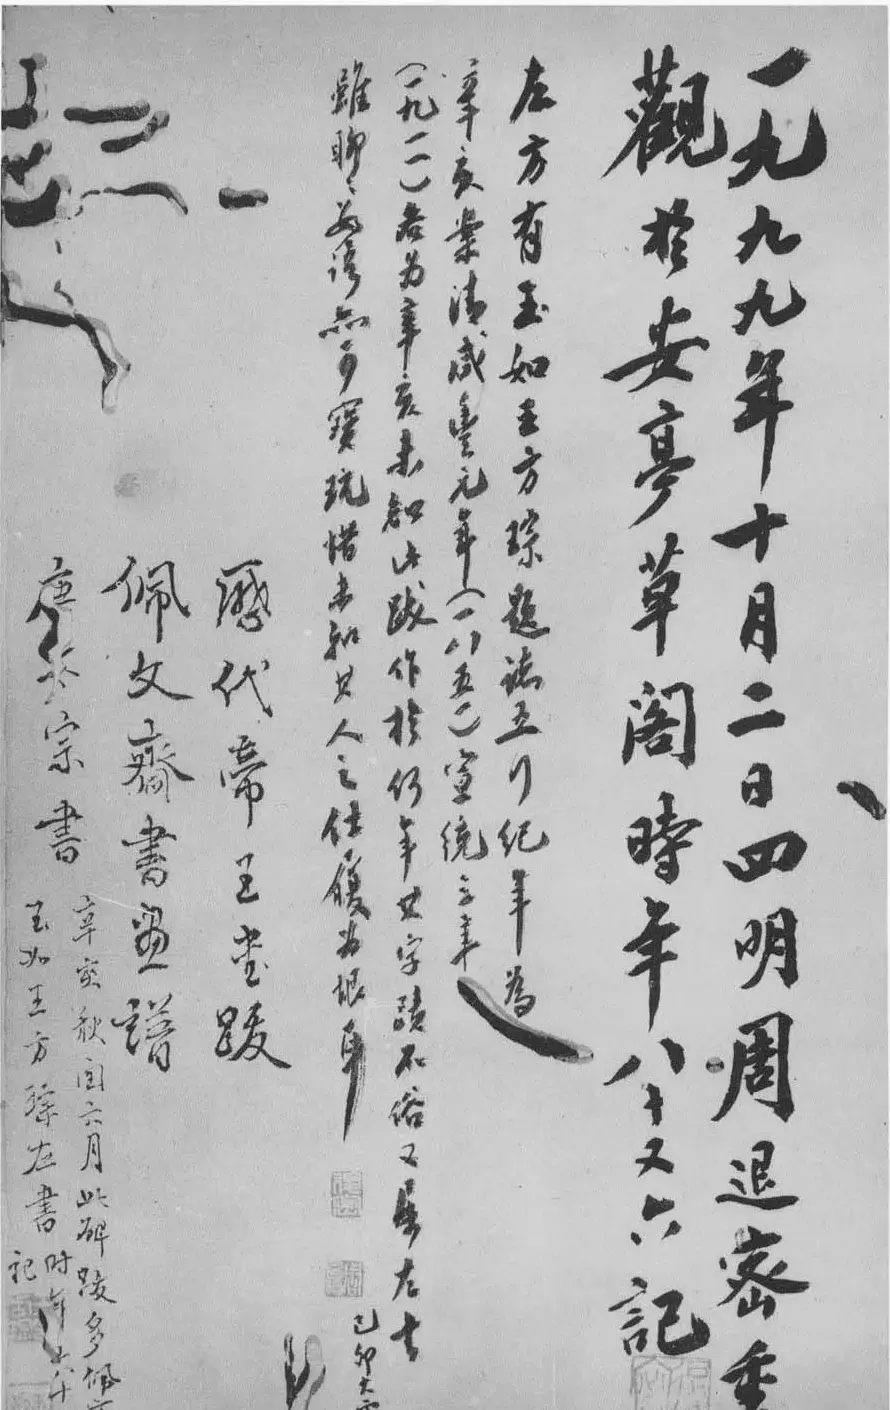 一九九九年十月二日四明周退密重
觀於安亭草閣時年八十又六記
左方有玉如王方琮題識五行紀年為
辛亥案清咸豐元年(一八五一)宣統三年
(一九一一)皆為辛亥未知此跋作於何年其字蹟不俗又屬左書
雖聊聊數語亦可寶玩惜未知其人之仕履為恨耳
己卯大雪
歷代帝王書跋
佩文齋書畫譜
唐太宗書
辛亥秋閏六月此碑跋多佩文
玉如王方琮左書時年六十
記